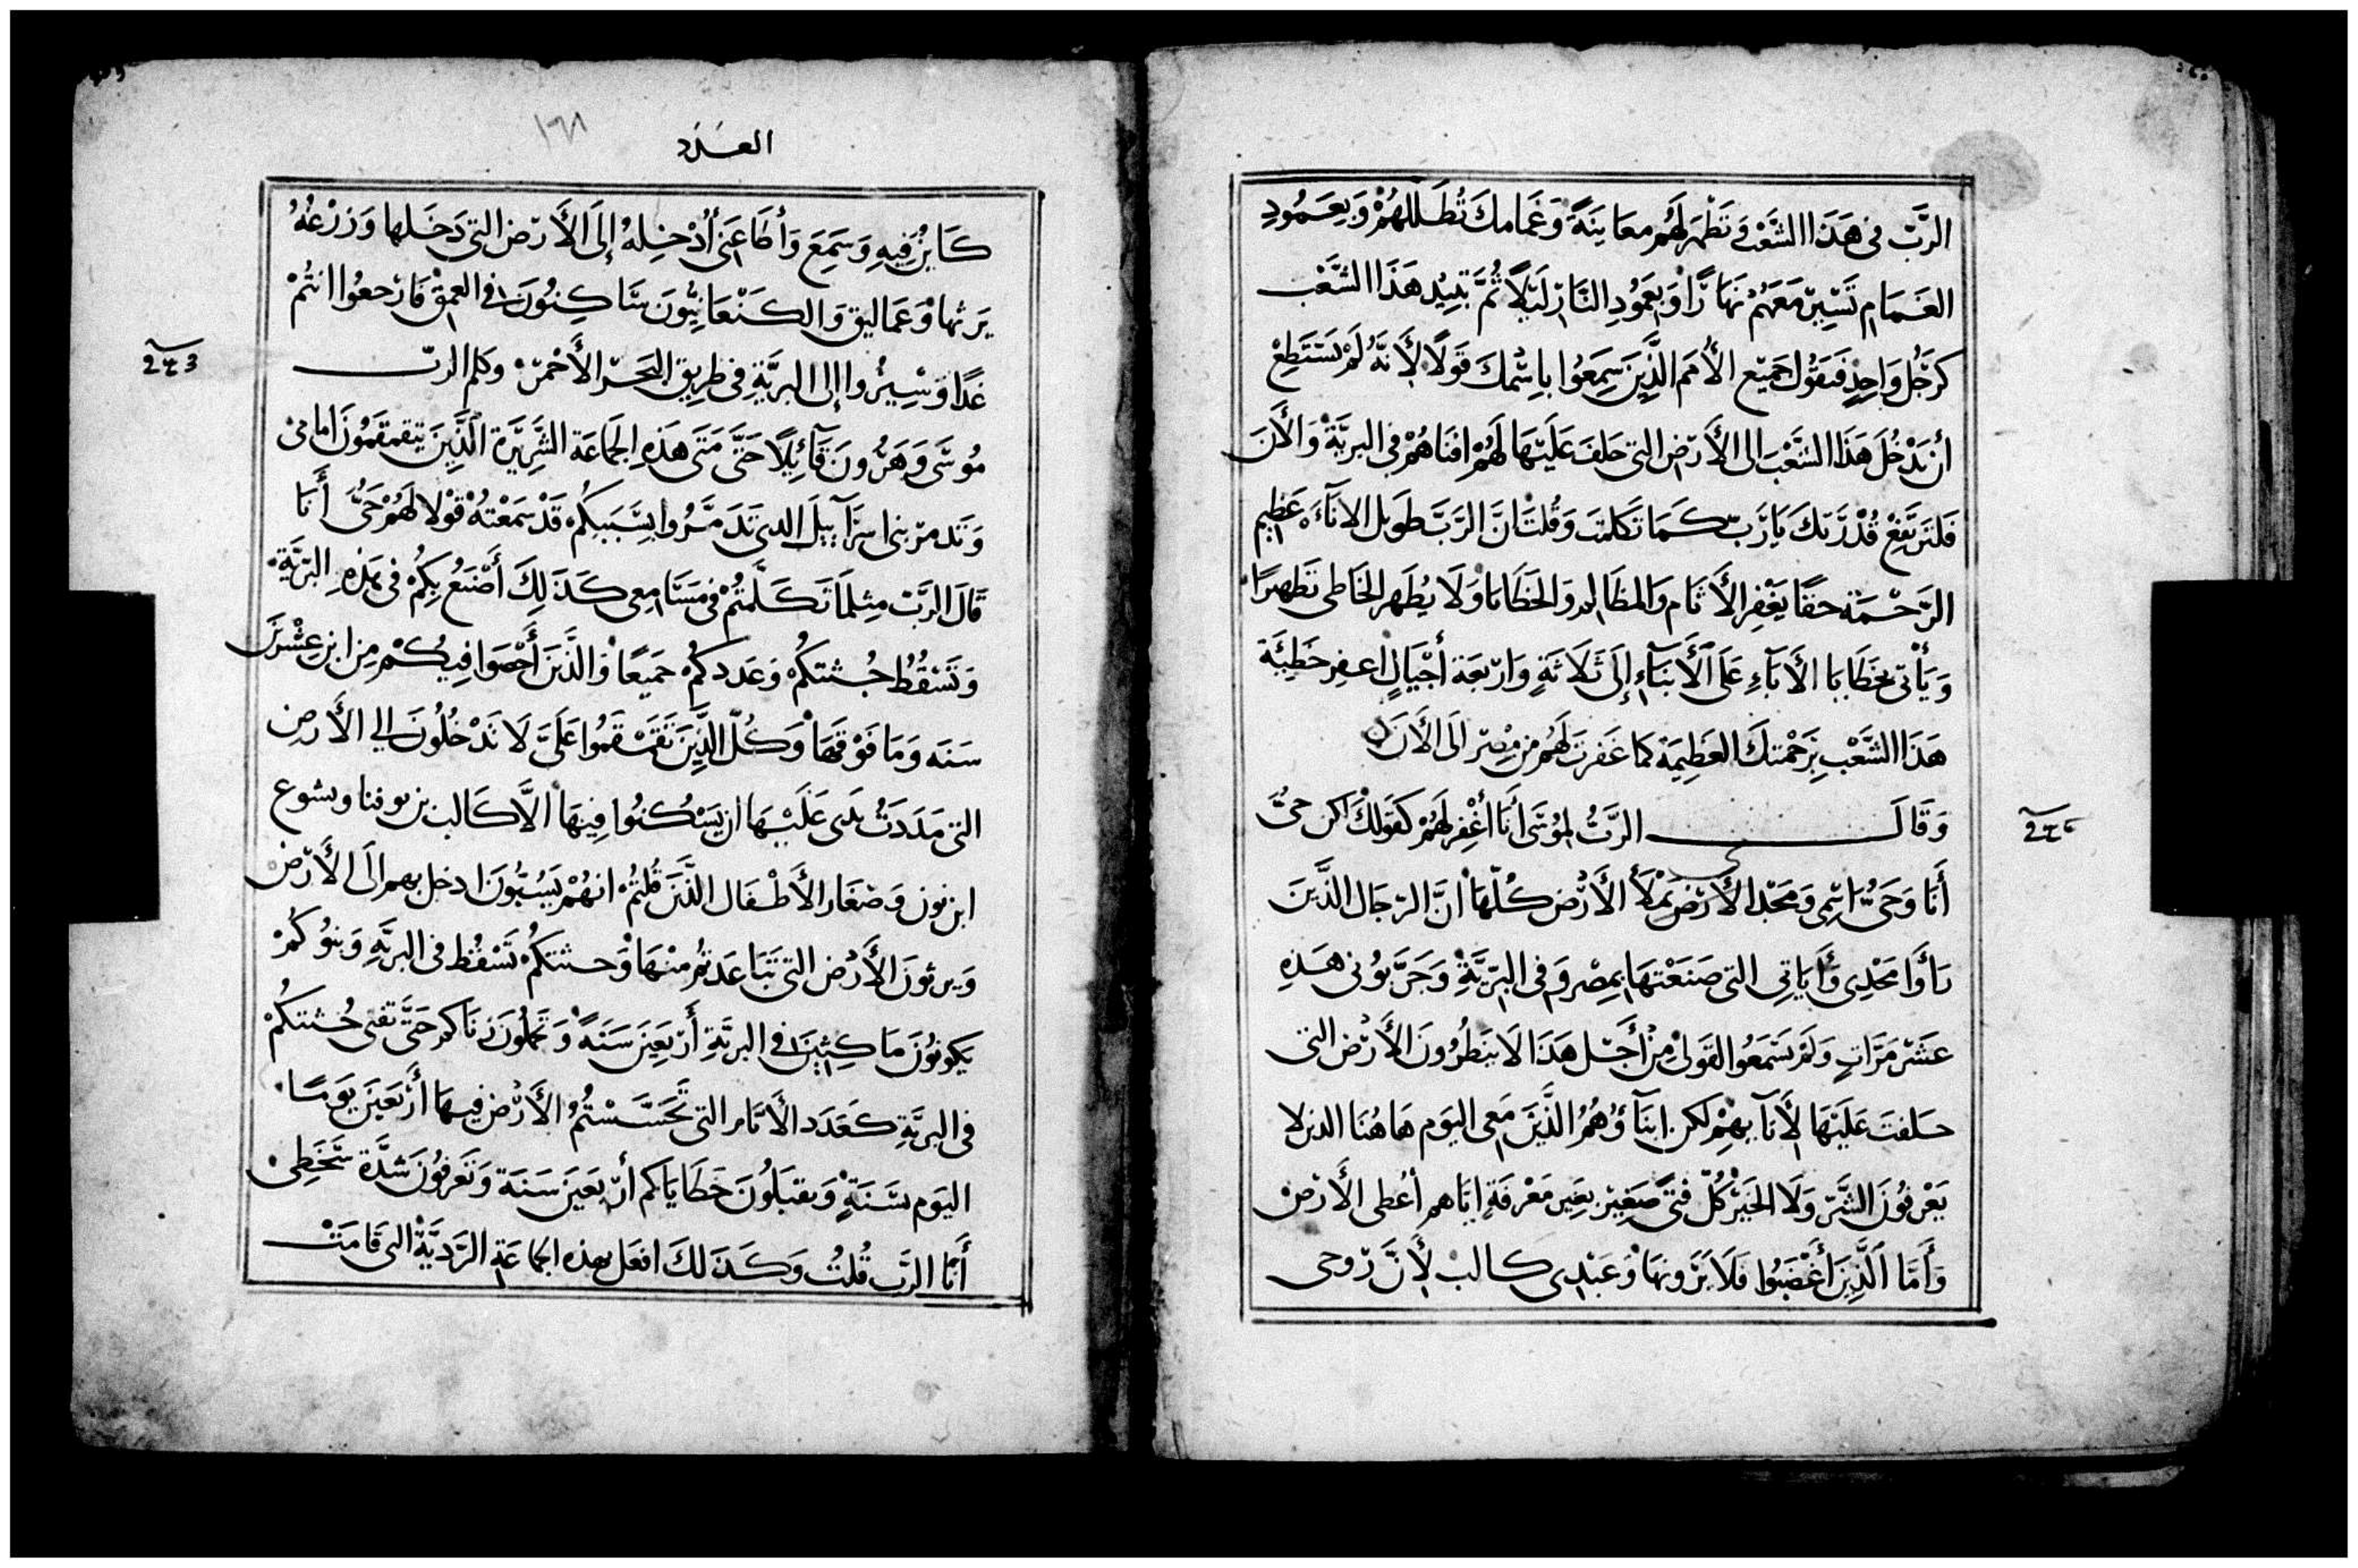 الرَّبّ فى هَذَا الشَّعْب وَتَظْهر لَهُم معاينَةً وَغَمامكَ تُظَللهُمْ وَبِعَمُودِ
الغَمَامِ تَسِيرْ مَعَهُمْ نهَارًا وَبعَمُودِ النَّارْ لَيْلًا ثُمَّ تبِيْد هَذَا الشَّعْب
كرَجُل وَاحِدٍ فَيَقُول جَمِيْع الأُمَم الَّذِينَ سَمِعُوا بِاسْمكَ قَولًا لأِنَّهُ لَمْ يَسْتَطِعْ
أنْ يَدْخُلَ هَذَا الشَّعْبَ الى الأَرْض التى حَلفَ عَليْهَا لَهُمْ افنَاهُمْ فى البريَّةْ وَالأَنَ
فَلتَرتَفِعْ قُدْرَتكَ يَارَبّ كَمَا تَكَلمتَ وَقُلتَ إنَّ الرَّبَّ طَويل الانَآءَه عَظِيم
الرَّحْمَة حقًا يَغْفِر الأَثَام وَالمظَالم وَالخَطَايَا وَلَا يُطَهر الخَاطى تَطهيرًا
وَيَأْتى بخَطَايَا الأَبَآءِ عَلَى الأَبنَآءِ إلَى ثَلَاثَةٍ وَارْبَعَة أجْيَالٍ اغفِر خَطِيَّة
هَذَا الشَّعْبِ بِرَحْمتكَ العَظِيمَة كما غَفرتَ لَهُم من مِصْر الَى الأَنَ
وَقَالَ الرَّبُّ لمُوْسَى أنَا أغْفِر لَهُمْ كَقَولكْ لكن حَىُّ
أَنَا وَحَىُّ اسْمِى وَمَجْدى الأَرْض يَمْلأُ الأَرْض كُلّهَا انَّ الرّجَال الذَّينَ
رَأوَا مَجْدِى وَأَيَاتِى التى صَنَعْتهَا بمِصْر وَفى البَرّيَّةْ وَجَرَّبوُنى هَذِهِ
عَشْر مَرَّاتٍ وَلَمْ يَسْمَعُوا القَولى مِنْ أَجْل هَذَا لَا يَنظرُونَ الأَرْض التى
حَلفتَ عَليْهَا لأَبَآيهِمْ لكن ابنَآؤُهُمُ الذَّيْنَ مَعِى اليَوم هَاهُنَا الذين لا
يَعْرفُونَ الشَّرّ وَلَا الخَيْرْ كُلّ فَتًى صَغِيْر بغَير مَعْرفَةٍ ايَّاهم أعْطى الأَرْضْ
وَأَمَّا الَّذِينَ أَغْضَبُوا فَلَا يَرَونهَا وَعَبْدِى كالب لأِنَّ رُوحى
العَدَد
١٦٨
كَاينٌ فِيهِ وَسَمِعَ وَأطَاعَنِى أُدْخِلهُ إلَى الأَرْض التى دَخَلها وَزرْعُهُ
يَرثها وَعَمَاليق وَالكَنْعَانِيُّونَ سَاكِنُونَ فى العمْق فَارْجعُوا انتُمْ
غَدًا وَسِيْرُوا إلى البريَّةِ فى طرِيق البَحْر الأَحْمَرْ وَكلم الربّ
مُوسَى وَهَرُونَ قَآئِلًا حَتَّى مَتَى هَذِهِ الجَمَاعَة الشَّرِيْرَة الَّذِينَ يتقمقمُونَ امَامى
وَتَدمرْ بنى اسْرَآييلَ الذى تَدَمَّرُوا بِسَّبَبكُم قَدْ سَمَعْتهُ قُوْلَا لَهُمْ حَىُّ أَنَا
قَالَ الرَّبّ مِثلَمَا تَكَلَّمتُمْ فى مَسَامِعِى كَذَلِكَ أَصْنَعُ بِكُمْ فى هَذِهِ البَرّيَّةِ
وَتَسْقُطُ جُثتكُمْ وَعَددكُمْ جَمِيعًا وَالذَّينَ أَحْصَوا فِيكُمْ مِن ابن عِشْرينَ
سَنَه وَمَا فَوْقهَا وَكُلّ الَّذِيْنَ تَقَمْقَمُوا عَلَىَّ لَا تَدْخُلُونَ الى الأَرض
التى مَدَدَتُ يَدَى عَلَيْهَا ان يَسْكُنُوا فِيهَا الاَّ كَالب بن يوفنا ويشوع
ابن نون وَصْغَار الأَطْفَال الذَّينَ قُلتُمْ انهُمْ يَسُبُّونَ ادخل بهم الَى الأَرْض
وَيرثونَ الأَرْض التى تَبَاعَدتُم منْهَا وَجثتكُمْ تَسْقُط فى البريَّهِ وَبنوُكُمْ
يَكونُونَ مَاكِثِينَ فى البريَّةِ أَرْبَعِينَ سَنَةً وَتحملُونَ زنَاكم حَتَّى تفنى جُثتكُمْ
فى البريَّةِ كَعَدَد الأَيَّام التى تَجَسَّسْتُمُ الأَرْض فِيهَا أَرْبَعِيَن يَومًا
اليَوم بسَنَةٍ وَتقبَلُونَ خَطَايَاكم أرْبَعِينَ سَنَة وَتَعَرفُونَ شدَّة سَخَطِى
أَنَا الرَّب قُلتُ وَكَذَلكَ افعَل بهذه الجَاعَة الرَّديَّةْ التى قَامَتْ